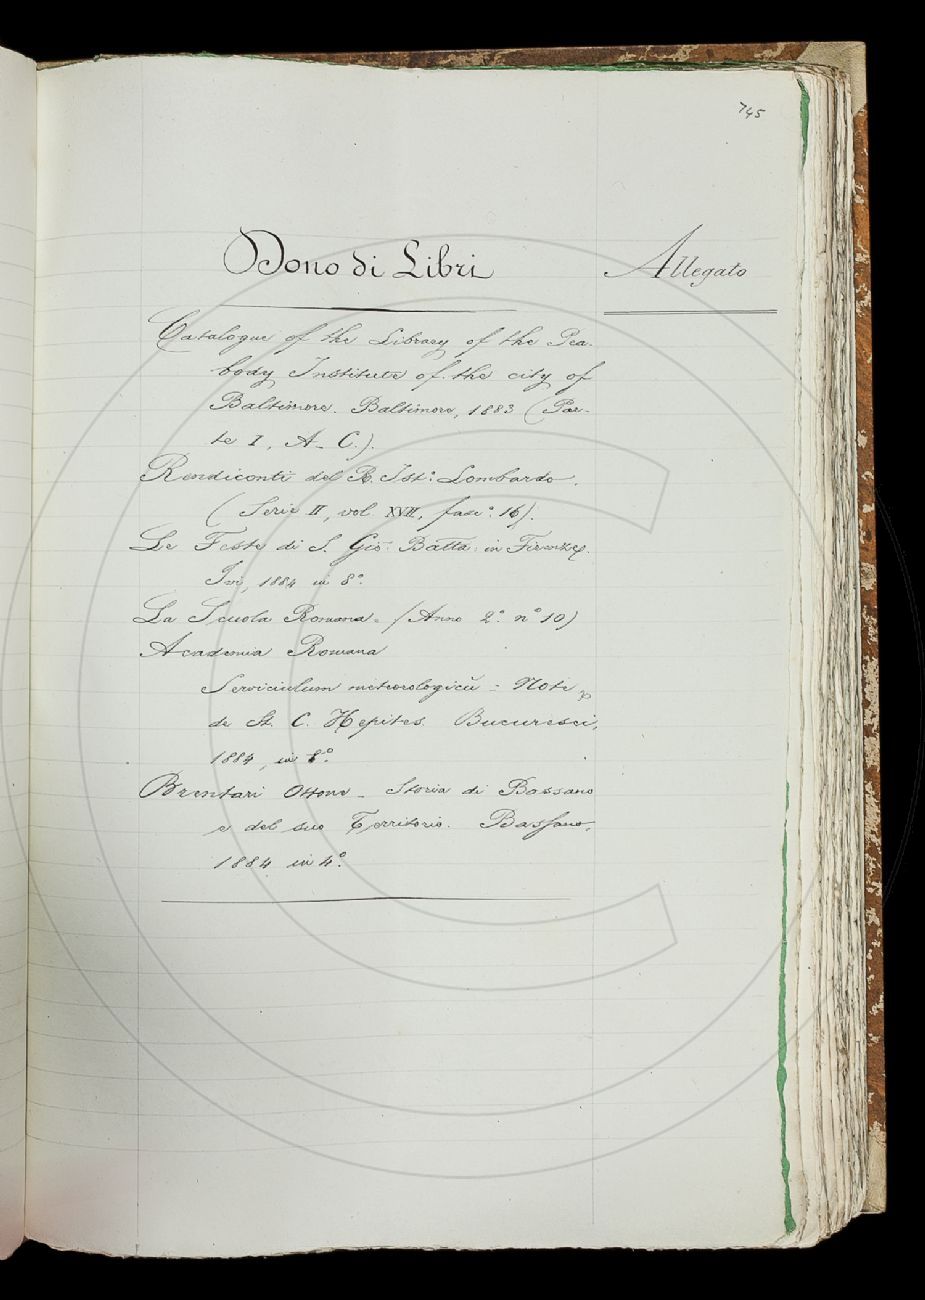 745
Dono di Libri
Allegato
Catalogue of the Library of the Pea-
body Institute of the city of
Baltimore. Baltimore, 1883 (Par-
te I, A-C.).
Rendiconti del R. Ist.° Lombardo.
(Serie II, vol. XVII, fasc.° 16).
Le Feste di S. Gio: Batta: in Firenze.
Ivi, 1884 in 8°.
La Scuola Romana. (Anno 2.° n° 10)
Academia Romana
Serviciulum meteorologicŭ = Note
de St. C. Hepites. Bucuresci,
1884, in 8°.
Brentari Ottone - Storia di Bassano
e del suo Territorio. Bassano,
1884 in 4°.